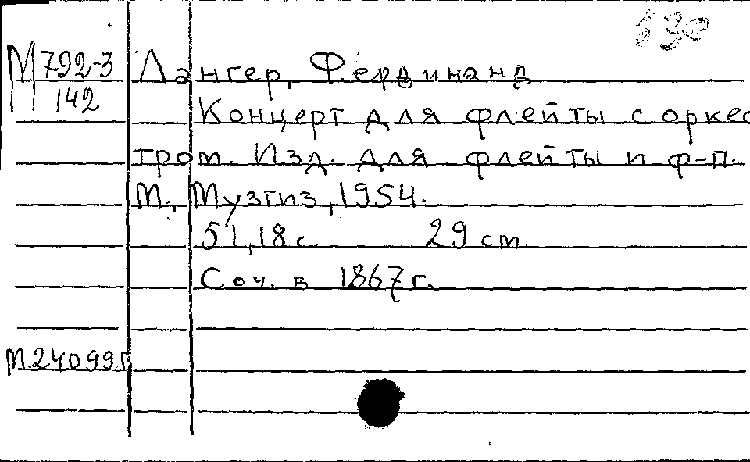 630
М 792-3
142
Лангер, Фердинанд
Концерт для флейты с оркес
тром. Изд. для флейты и ф-п.
М., Музгиз, 1954.
51, 18 с. 29 см
Соч. в 1867 г.
М24099г